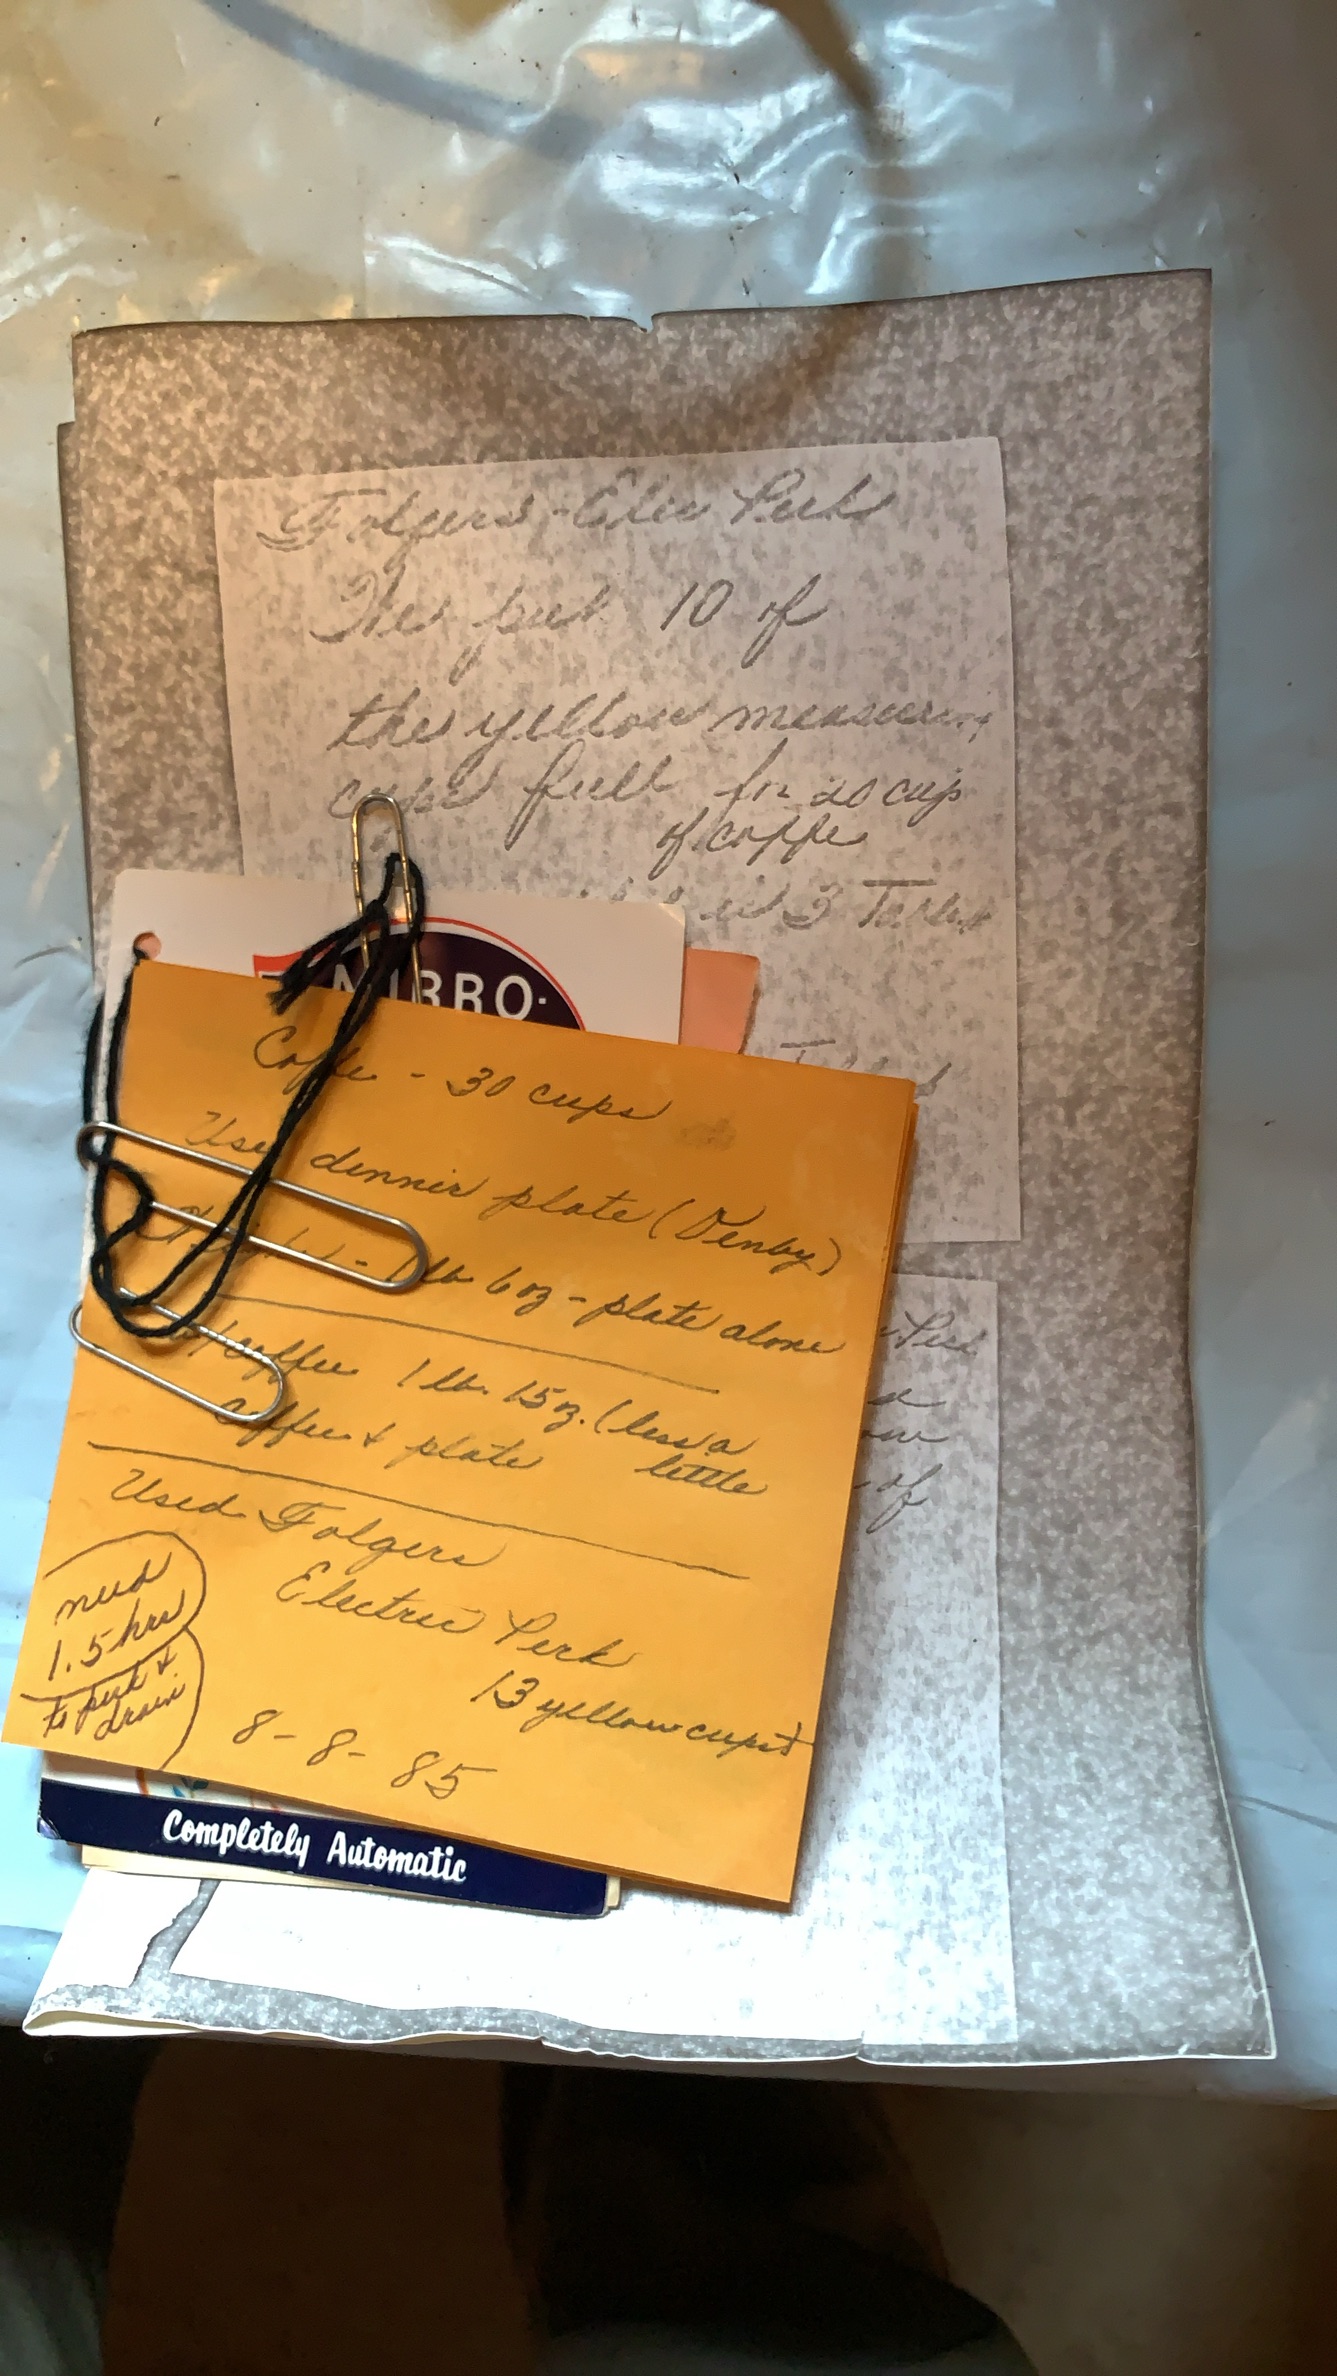 Folgers - Elec Perk
We put 10 of
the yellow measuring
cups full for 20 cup
of coffee
is 3 Tables
MIRRO
Coffee - 30 cups
Use dinner plate (Denby)
1 lb 6 oz - plate alone
coffee 1 lb. 15 oz. (less a
little
coffee & plate
Used Folgers
Electric Perk
13 yellow cups
need
1.5 hrs
to perk &
drain
8-8-85
Perk
of
Completely Automatic